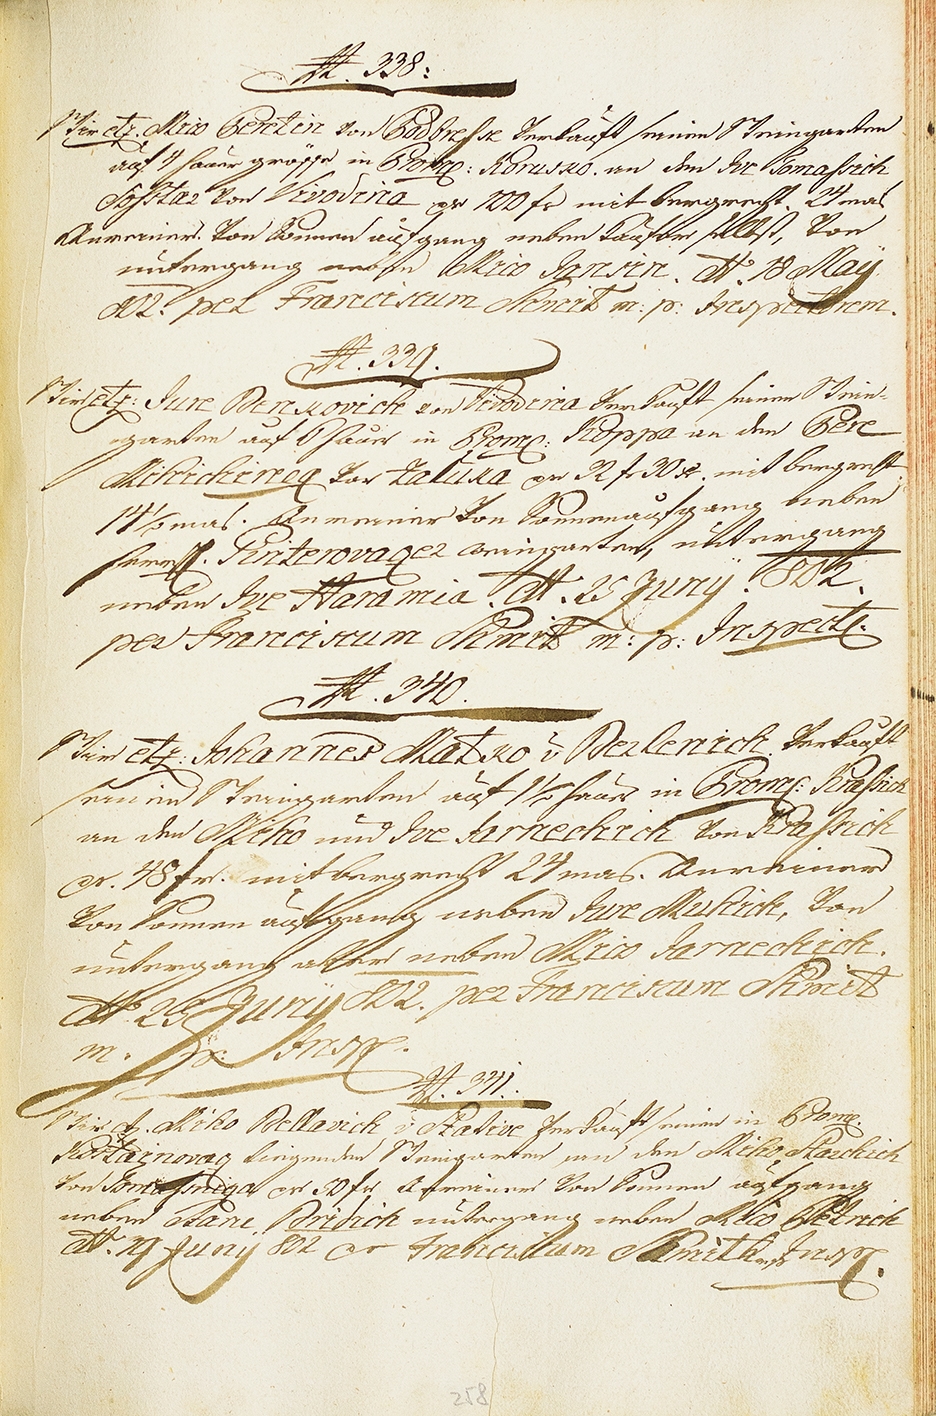 N. 338:
Wir etz. Mico Peretin von Podbresje verkauft seinen Weingarten
auf 7 hauer grösse in Promo: Korusko. an den Ive Tomassich
Sosstar von Vivodina pr 100 fr mit bergrecht. 24 mas
Anreiner. Von Sonnen aufgang neben Kaufer selbst, Von
untergang neben Mico Jansin. N. 18 May
802. per Franciscum Schmit m: p: Inspectorem.
N. 339.
Wir etz: Jure Benkovich von Vivodina verkauft seinen Wein-
garten auf 6 hauer in Promo: Koppa an den Pere
von Zaluka pr 32 fr 30 xr. mit bergrecht
14 1/2 mas. Anreiner Von Sonnenaufgang neben
Weingarten, untergang
neben Ive Haramia. N. 25 Juny. 802.
per Franciscum Schmit m: p: Inspect.
N. 340.
Wir etz: Johannes Matko v Berlenich verkauft
seinen Weingarten auf 1 1/2 hauer in Promo: Krassich
an den Miko und Ive Jarnechich von Krassich
pr. 48 fr. mit bergrecht 24 mas. Anreiner
Von Sonnen aufgang neben Jure Mutich, Von
untergang aber neben Mico Jarnechich.
N. 25 Juny 802. per Franciscum Schmit
m. p. Insp.
N. 341.
Wir etz. Miko Bellavich v Stative verkauft seinen in Promo.
liegenden Weingarten an den Miko Starchich
von pr 30 fr Anreiner Von Sonnen aufgang
neben Stane Bridich untergang neben Mico Petrich
N. 29 Juny 802 pr Franciscum Schmith mp Insp.
258